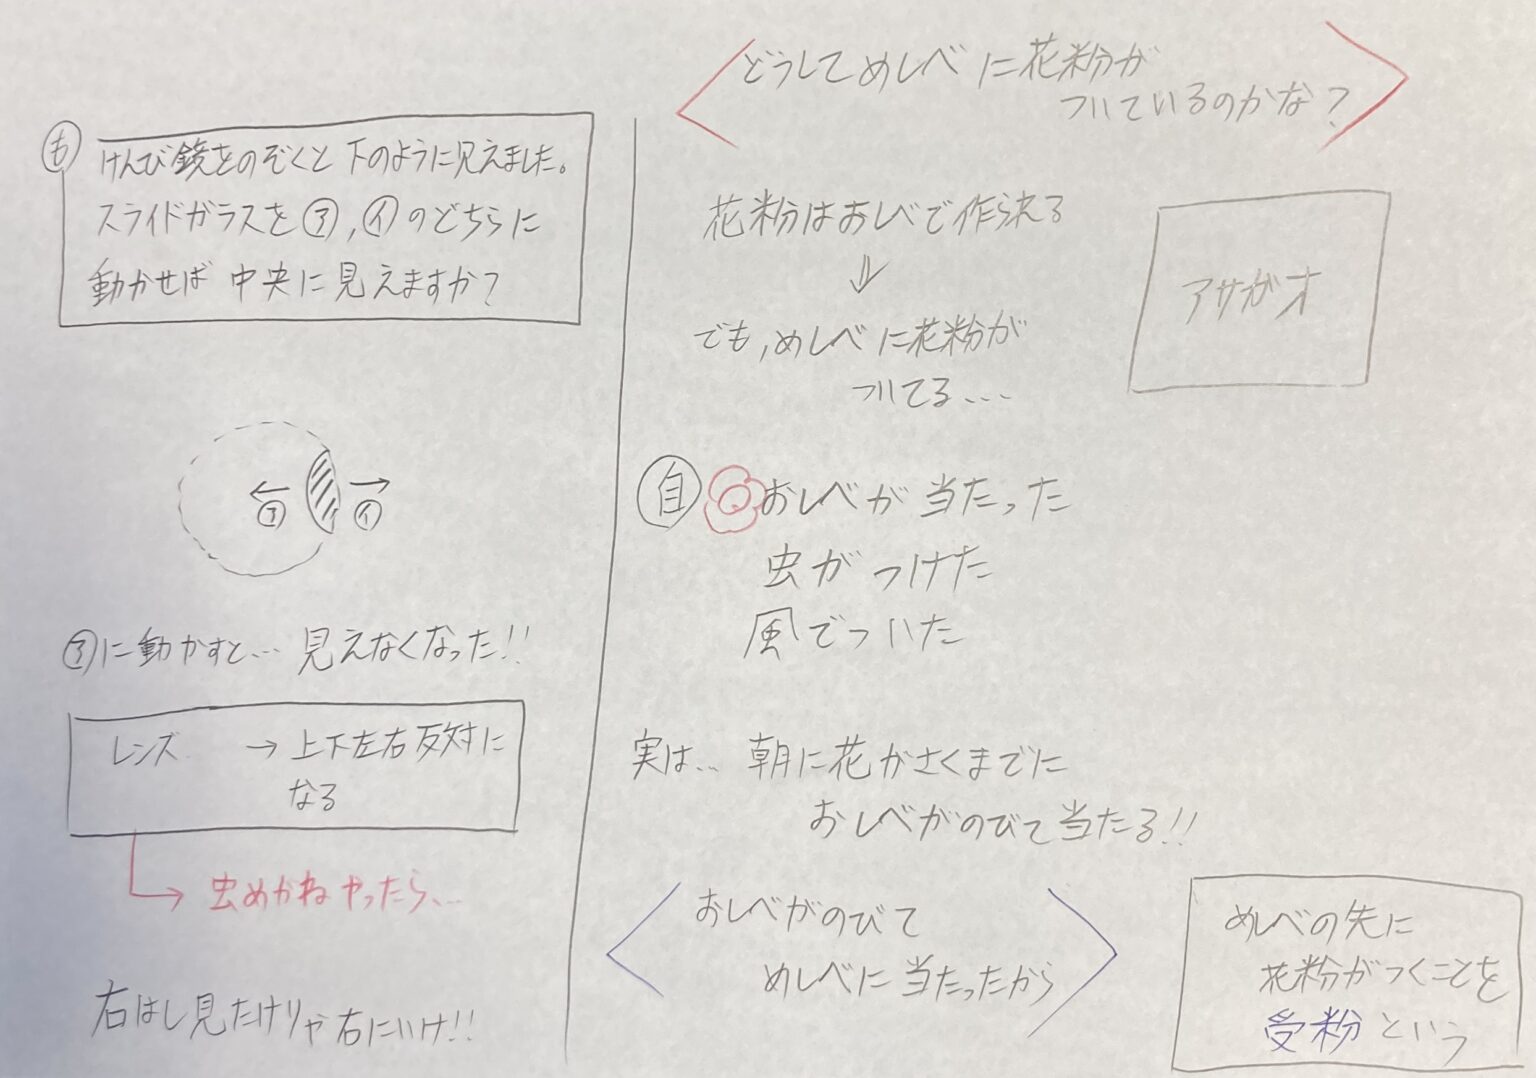 も
けんび鏡をのぞくと下のように見えました。
スライドガラスを㋐,㋑のどちらに
動かせば中央に見えますか?
← →
㋐ ㋑
㋐に動かすと… 見えなくなった!!
レンズ → 上下左右反対に
なる
虫めがねやったら…
右はし見たけりゃ右にいけ!!
どうしてめしべに花粉が
ついているのかな?
花粉はおしべで作られる
⇓
でも,めしべに花粉が
ついてる…
アサガオ
自 おしべが当たった
虫がつけた
風でついた
実は… 朝に花がさくまでに
おしべがのびて当たる!!
おしべがのびて
めしべに当たったから
めしべの先に
花粉がつくことを
受粉という